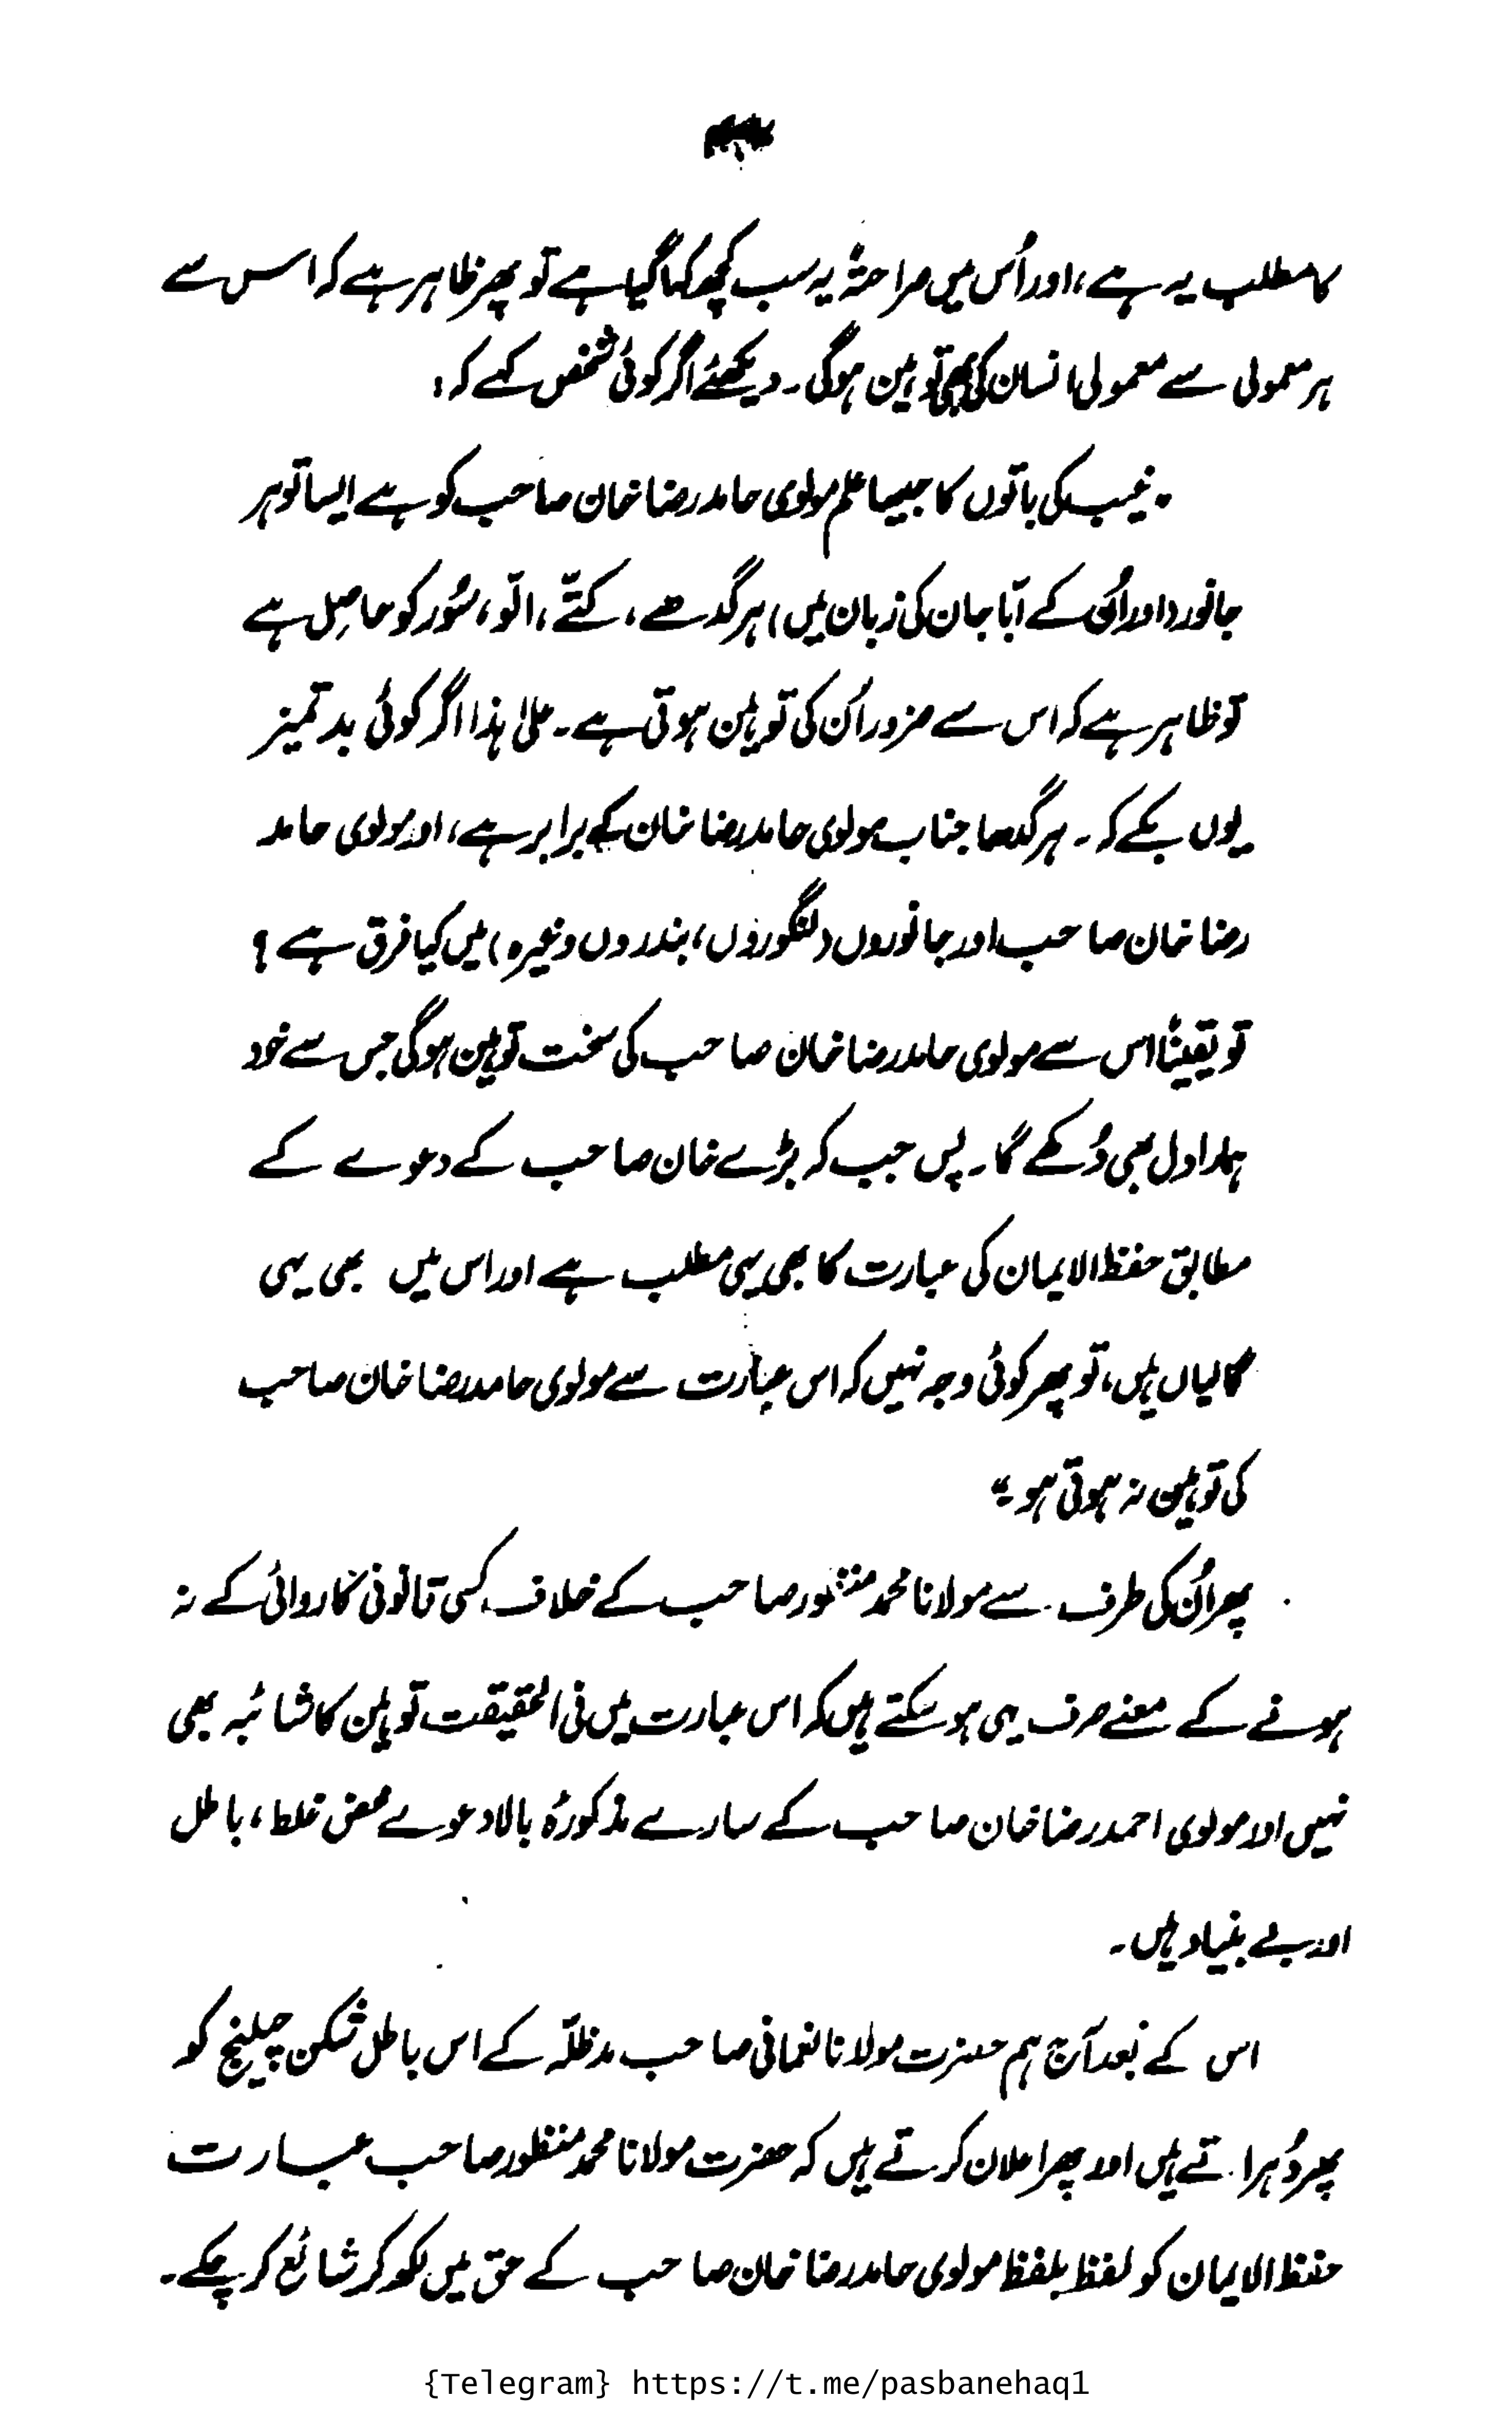 کا مطلب یہ ہے، اور اُس میں صراحۃً یہ سب کچھ کہا گیا ہے تو پھر ظاہر ہے کہ اس سے
ہر معمولی سے معمولی انسان کی بھی توہین ہوگی۔ دیکھئے اگر کوئی شخص کہے کہ:
"غیب کی باتوں کا جیسا علم مولوی حامد رضا خان صاحب کو ہے ایسا تو ہر
جانور (اور اُن کے ابّا جان کی زبان میں) ہر گدھے، کتّے، الّو، سُور کو حاصِل ہے
تو ظاہر ہے کہ اس سے ضرور اُن کی توہین ہوتی ہے۔ علیٰ ہذا اگر کوئی بد تمیز
یوں بکے کہ۔ ہر گدھا جناب مولوی حامد رضا خان کے برابر ہے، اور مولوی حامد
رضا خان صاحب اور جانوروں (لنگوروں، بندروں وغیرہ) میں کیا فرق ہے ؟
تو یقیناً اس سے مولوی حامد رضا خان صاحب کی سخت توہین ہوگی جس سے خود
ہمارا دل بھی دُکھے گا۔ پس جب کہ بڑے خان صاحب کے دعوے کے
مطابق حفظ الایمان کی عبارت کا بھی یہی مطلب ہے اور اس میں بھی یہی
گالیاں ہیں، تو پھر کوئی وجہ نہیں کہ اس عبارت سے مولوی حامد رضا خان صاحب
کی توہین نہ ہوتی ہو۔"
پھر اُن کی طرف سے مولانا محمد منظور صاحب کے خلاف کسی قانونی کاروائی کے نہ
ہونے کے معنے صرف یہی ہو سکتے ہیں کہ اس عبارت میں فی الحقیقت توہین کا شائبہ بھی
نہیں اور مولوی احمد رضا خان صاحب کے سارے مذکورۂ بالا دعوے محض غلط، باطل
اور بے بنیاد ہیں۔
اس کے بعد آج ہم حضرت مولانا نعمانی صاحب مدظلّہ کے اس باطل شکن چیلنج کو
پھر دُہراتے ہیں اور پھر اعلان کرتے ہیں کہ حضرت مولانا محمد منظور صاحب عبارت
حفظ الایمان کو لفظ بلفظ مولوی حامد رضا خان صاحب کے حق میں لکھ کر شائع کر چکے۔
{Telegram} https://t.me/pasbanehaq1